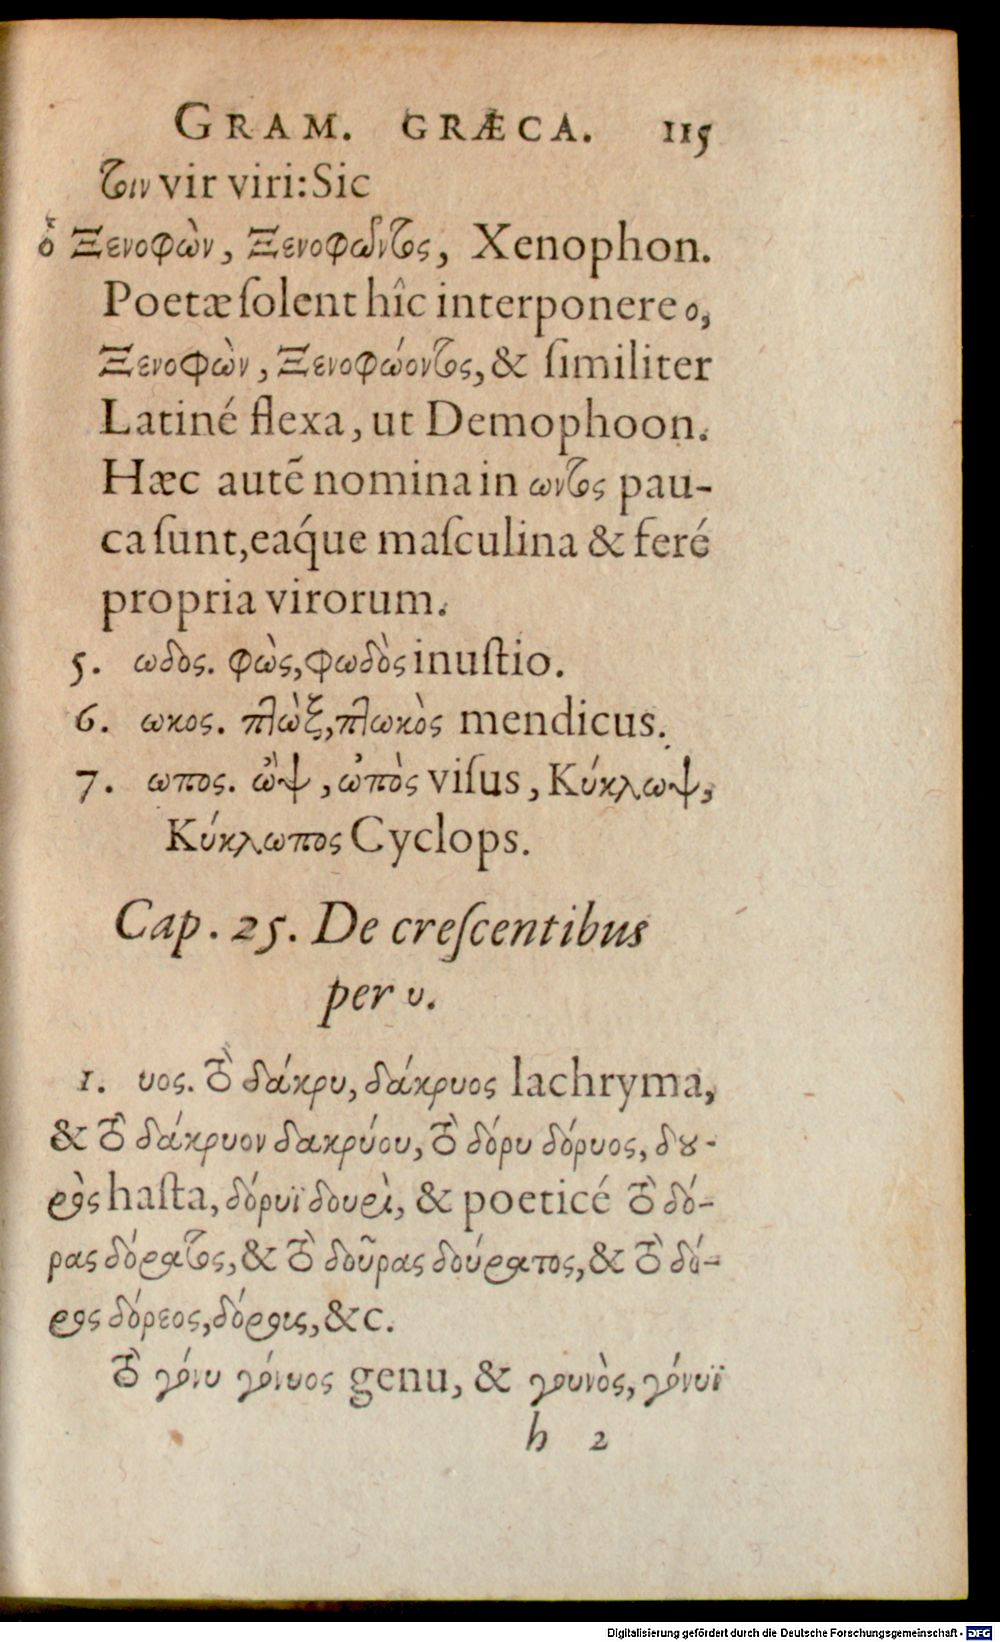 GRAM. GRÆCA. 115
τοιν vir viri: Sic
ὁ Ξενοφῶν, Ξενοφῶντος, Xenophon.
Poetæ ſolent hîc interponere ο,
Ξενοφὼν, Ξενοφώοντος, & ſimiliter
Latiné flexa, ut Demophoon.
Hæc autē nomina in ωντος pau-
ca ſunt, eaq́ue maſculina & feré
propria virorum.
5. ωδος. φὼς, φωδὸς inuſtio.
6. ωκος. πλὼξ, πλωκὸς mendicus.
7. ωπος. ὢψ, ὠπὸς viſus, Κύκλωψ,
Κύκλωπος Cyclops.
Cap. 25. De creſcentibus
per υ.
1. υος. τὸ δάκρυ, δάκρυος lachryma,
& τὸ δάκρυον δακρύου, τὸ δόρυ δόρυος, δȣ-
ρὸς haſta, δόρυϊ δουρὶ, & poeticé τὸ δό-
ρας δόρατος, & τὸ δοῦρας δούρατος, & τὸ δό-
ρος δόρεος, δόρεις, &c.
τὸ γόνυ γόνυος genu, & γουνὸς, γόνυϊ
h 2
Digitalisierung gefördert durch die Deutsche Forschungsgemeinschaft - DFG